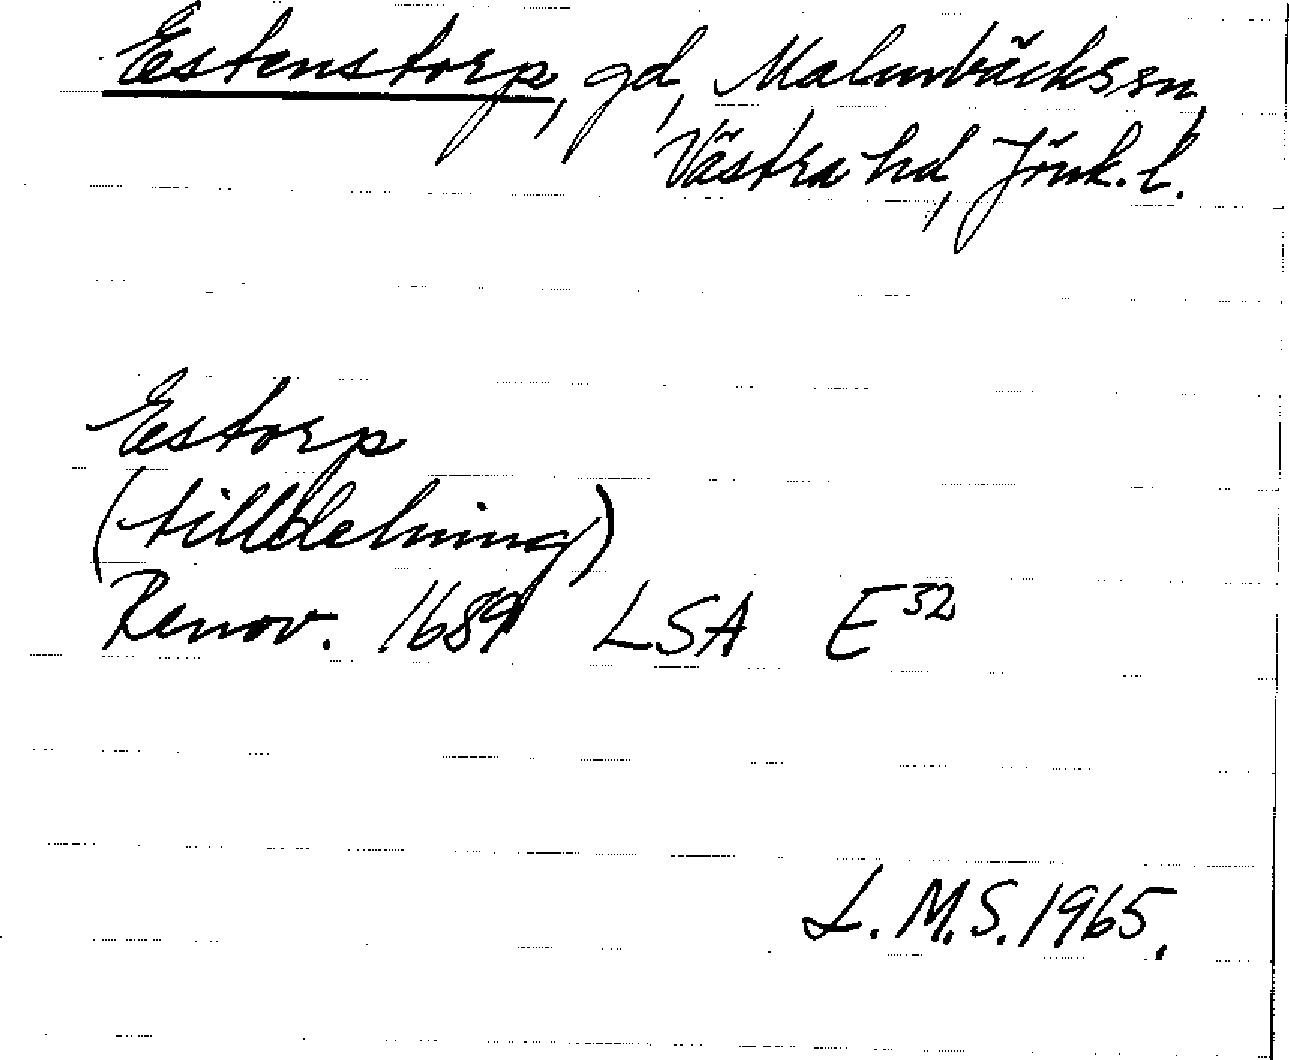 Estenstorp, gd, Malmbäcks sn,
Västra hd, Jönk. l.
Estorp
(tilldelning)
Renov. 1689 LSA E32
L.M.S. 1965.